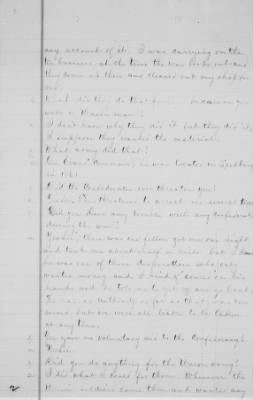 any account of it. I was carrying on the
tin business at the time the war broke out and
they came up there and cleared out my shop for
me.
What did they do that for? because you
were a Union man?
I don't know why they did it but they did it,
I suppose they wanted the material.
What army did that?
Gen command, he was located in
in 1861.
Did the Confederates ever threaten you?
threatened to arrest me several times
Did you have any trouble with any Confederates
during the war?
there was one fellow got me one night
and took me about half a mile but I
he was one of those desperadoes who only
wanted money and I kind of in his
hands and he told me to get up and go back.
He had no authority so far as that was
but we were all liable to be taken
at any time.
You gave no voluntary aid to the Confederacy?
Did you do anything for the Union army?
I did what I could for them. Whenever the
Union soldiers came there and wanted any
2